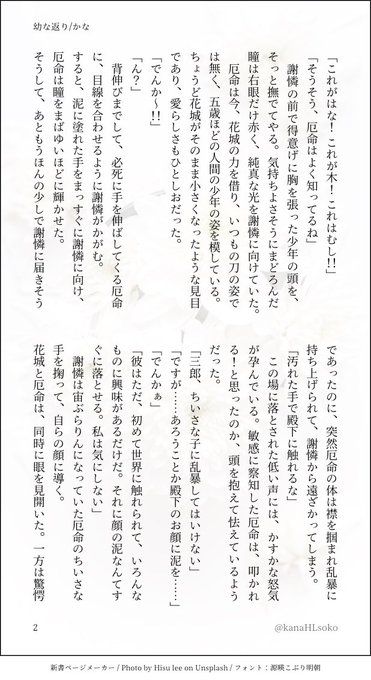 幼な返り/かな
「これがはな！これが木！これはむし!!」
「そうそう、厄命はよく知ってるね」
　謝憐の前で得意げに胸を張った少年の頭を、
そっと撫でてやる。気持ちよさそうにまどろんだ
瞳は右眼だけ赤く、純真な光を謝憐に向けていた。
　厄命は今、花城の力を借り、いつもの刀の姿で
は無く、五歳ほどの人間の少年の姿を模している。
ちょうど花城がそのまま小さくなったような見目
であり、愛らしさもひとしおだった。
「でんか〜!!」
「ん？」
　背伸びまでして、必死に手を伸ばしてくる厄命
に、目線を合わせるように謝憐がかがむ。
すると、泥に塗れた手をまっすぐに謝憐に向け、
厄命は瞳をまばゆいほどに輝かせた。
そうして、あともうほんの少しで謝憐に届きそう
であったのに、突然厄命の体は襟を掴まれ乱暴に
持ち上げられて、謝憐から遠ざかってしまう。
「汚れた手で殿下に触れるな」
　この場に落とされた低い声には、かすかな怒気
が孕んでいる。敏感に察知した厄命は、叩かれ
る！と思ったのか、頭を抱えて怯えているよう
だった。
「三郎、ちいさな子に乱暴してはいけない」
「ですが……あろうことか殿下のお顔に泥を……」
「でんかぁ」
「彼はただ、初めて世界に触れられて、いろんな
ものに興味があるだけだ。それに顔の泥なんてす
ぐに落とせる。私は気にしない」
　謝憐は宙ぶらりんになっていた厄命のちいさな
手を掬って、自らの顔に導く。
花城と厄命は、同時に眼を見開いた。一方は驚愕
2
@kanaHLsoko
新書ページメーカー / Photo by Hisu lee on Unsplash / フォント：源暎こぶり明朝